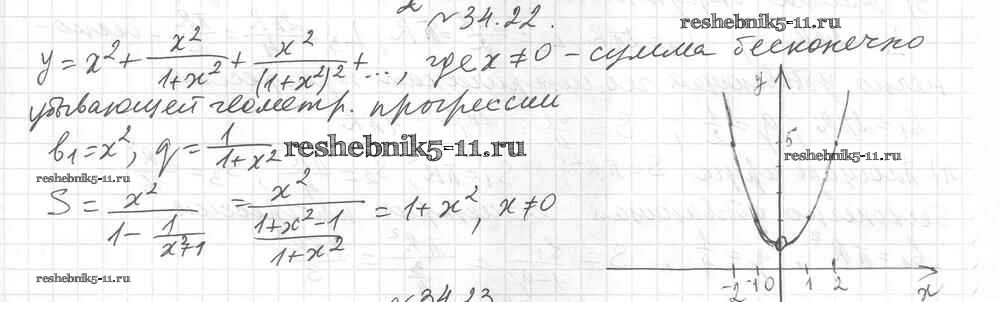 №34.22.
reshebnik5-11.ru
y = x² + x²/(1+x²) + x²/(1+x²)² + ..., где x ≠ 0 – сумма бесконечно
убывающей геометр. прогрессии
b₁ = x², q = 1/(1+x²) reshebnik5-11.ru
reshebnik5-11.ru
S = x²/(1 - 1/(x²+1)) = x²/((1+x²-1)/(1+x²)) = 1+x², x≠0
reshebnik5-11.ru
y
5
reshebnik5-11.ru
-2 -1 0 1 2 x
№34.23